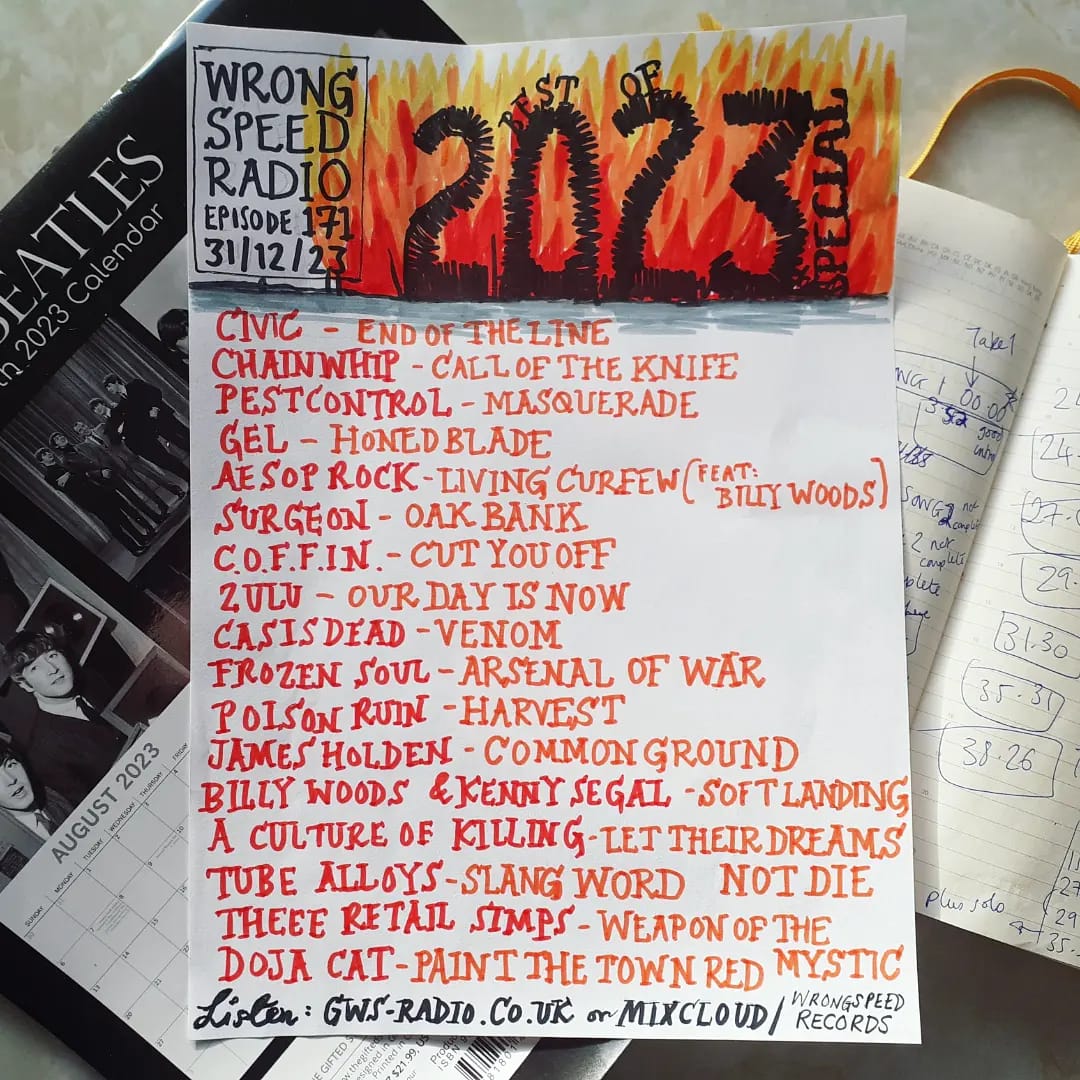 WRONG
SPEED
RADIO
EPISODE 171
31/12/23
BEST OF
2023
SPECIAL
CIVIC - END OF THE LINE
CHAINWHIP - CALL OF THE KNIFE
PEST CONTROL - MASQUERADE
GEL - HONED BLADE
AESOP ROCK - LIVING CURFEW (FEAT: BILLY WOODS)
SURGEON - OAK BANK
C.O.F.F.I.N. - CUT YOU OFF
ZULU - OUR DAY IS NOW
CASISDEAD - VENOM
FROZEN SOUL - ARSENAL OF WAR
POISON RUIN - HARVEST
JAMES HOLDEN - COMMON GROUND
BILLY WOODS & KENNY SEGAL - SOFT LANDING
A CULTURE OF KILLING - LET THEIR DREAMS
NOT DIE
TUBE ALLOYS - SLANG WORD
THEEE RETAIL SIMPS - WEAPON OF THE
MYSTIC
DOJA CAT - PAINT THE TOWN RED
Listen: GWS-RADIO.CO.UK or MIXCLOUD/ WRONGSPEED
RECORDS
BEATLES
2023 Calendar
AUGUST 2023
SUNDAY MONDAY TUESDAY WEDNESDAY THURSDAY FRIDAY
THE GIFTED
$21.99, US
ISBN
Take 1
00.00
good
SONG 2 not
complete
2 not
complete
31.30
35.31
38.26
plus solo